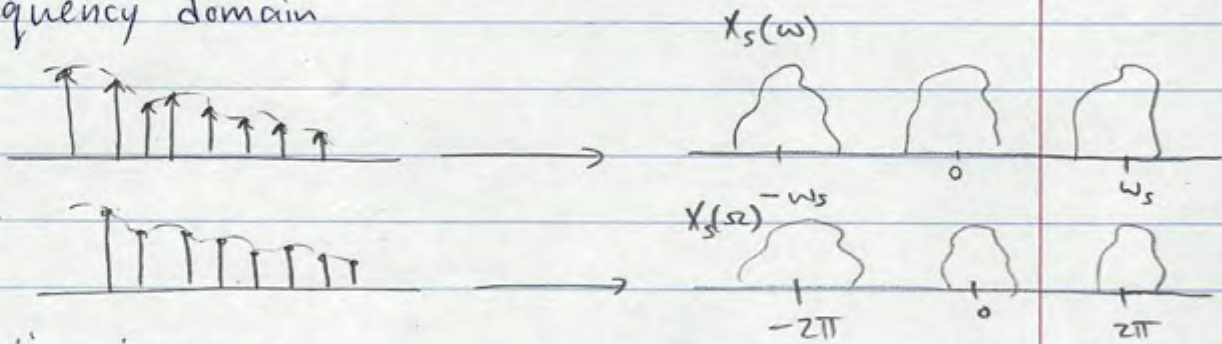 quency domain
Xₛ(ω)
-ωₛ 0 ωₛ
Xₛ(Ω)
-2π 0 2π